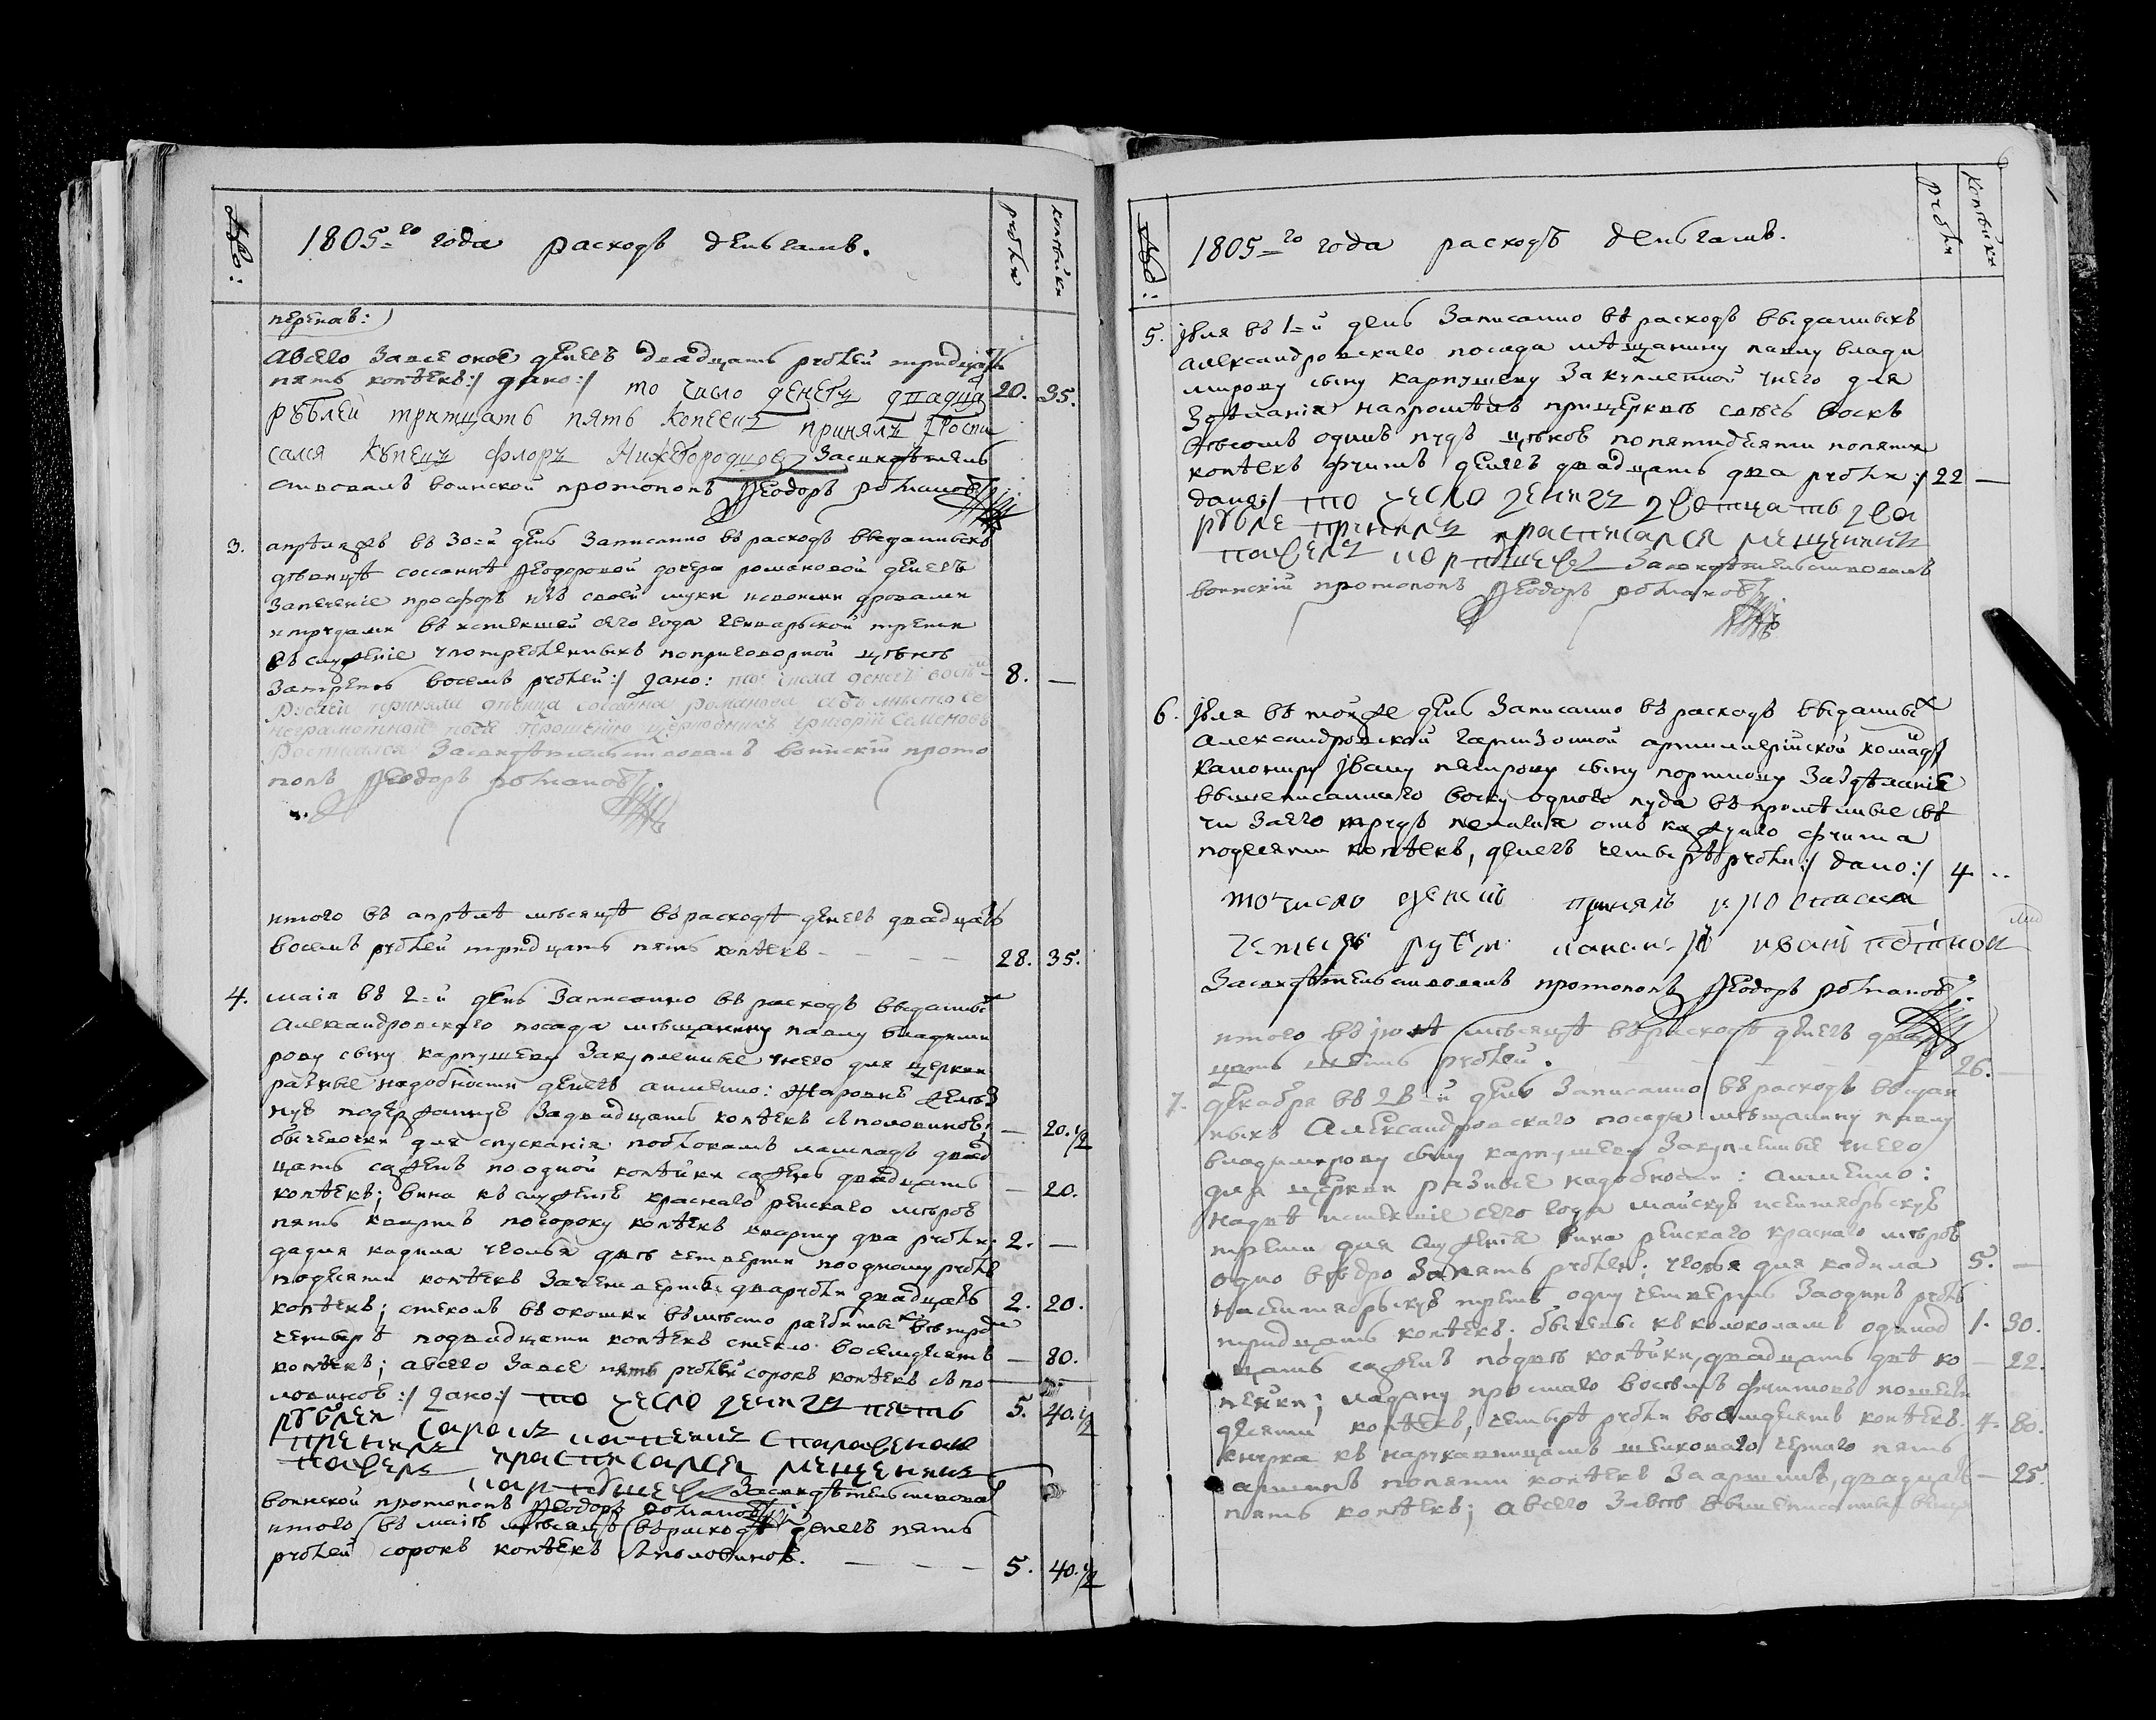 №: 1805=го года расходъ деньгамъ. рубли копѣйки
перенав:)
Авсего завсе оное денегъ двадцать рублей тридцать
пять копѣекъ:/ дано:/ то число денегъ дватцать 20. 35.
рублей тритцать пять копеекъ принялъ и роспи
сался купецъ флоръ Нижегородцовъ Засвидѣтель
ствовалъ воинской протопопъ Ѳеодоръ романовъ
3. апрѣля въ 30=й день Записанно въ расходъ выданныхъ
дѣвицѣ соссаннѣ Ѳеодоровой дочери романовой денегъ
Запечение просфоръ изъ своей муки исвоими дровами
итрудами въ истекшей сего года генварьской трети
въ служение употребленныхъ поприговорной цѣнѣ
Затреть восемь рублей:/ дано: то числа денегъ восемь 8. —
рублей приняла дѣвица соссанна романова, авъ мѣсто ее
неграмотной поея прошению церковникъ григорій Семеновъ
Росписался Засвидѣтельствовалъ воинскій прото
попъ Ѳеодоръ романовъ
итого въ апрѣлѣ мѣсяцѣ въ расходѣ денегъ двадцать
восемь рублей тридцать пять копѣекъ - - - - 28. 35.
4. маія въ 2=й день Записанно въ расходъ выданные
Александровскаго посада мѣщанину павлу владими
рову сыну карпушеву Закупленные унего для церкви
разные надобности денегъ аименно: жаровнѣ желѣз
нуѣ подержаннуѣ Задвадцать копѣекъ съ половиноѣ, — 20. 1/2
бичевочки для спускания поблокамъ лампадъ двад
цать саженъ поодной копѣйки сажень двадцать
копѣекъ; вина къ служение краснаго ренскаго мѣроѣ — 20.
пять квартъ посороку копѣекъ кварту два рубли; 2. —
дадля кадила уголья двѣ четверти поодному рублѣ
подесяти копѣекъ Зачетверть: дварубли двадцать
копѣекъ; стеколъ въ окошки вмѣсто разбитыхъ 2. 20.
четыре подвадцати копѣекъ стекло восемдесятъ
копѣекъ; авсего Завсе пять рублей сорокъ копѣекъ съ по — 80.
ловиноѣ:/ дано:/ то чесло денегъ петь 5. 40. 1/2
рублеи сарокъ копеекъ спаловенои
пренелъ ираспесалсе мещененъ
павелъ карпушевъ Засвидѣтельствовалъ
воинской протопопъ Ѳеодоръ романовъ
итого въ маіѣ мѣсяцѣ въ расходѣ денегъ пять
рублей сорокъ копѣекъ съ половиноѣ. — — — 5. 40. 1/2
№: 1805=го года расходъ деньгамъ. рубли копѣйки
5. Іюля въ 1=й день Записанно въ расходъ выданныхъ
Александровскаго посада мѣщанину павлу влади
мирову сыну карпушеву Закупленной унего для
Здѣлания напромѣнъ прицерквѣ свѣсь воскъ
вѣсомъ одинъ пудъ цѣноѣ попятидесяти попяти
копѣекъ фунтъ денегъ двадцать два рубли:/ 22 —
дано:/ то чесло денегъ дватцать два
рубле пренелъ ираспесался мещененъ
павелъ карпушевъ Засвидѣтельствовалъ
воинскій протопопъ Ѳеодоръ романовъ
6. Іюля въ тойже день Записанно въ расходъ выданныхъ
Александровской гарнизонной артиллерійской команды
канониру Івану петрову сыну портнову Заздѣлание
вышеписаннаго воску одного пуда въ промѣнные свѣ
чи Заего трудъ отъ каждаго фунта
подесяти копѣекъ, денегъ четыре рубли:/ дано:/ 4. ..
точисло денегъ принялъ
четыре рубли иванъ
Засвидѣтельствовалъ протопопъ Ѳеодоръ романовъ
итого въ іюлѣ мѣсяцѣ въ расходѣ денегъ двад
цать шесть рублей. — — 26. —
7. Декабря въ 28=й день Записанно въ расходъ выдан
ныхъ Александровскаго посада мѣщанину павлу
владимирову сыну карпушеву Закупленные унего
для церкви разные надобности: аименно:
надвѣ истекшие сего года майскуѣ исентябрьскуѣ
трети для служения вина ренскаго краснаго мѣроѣ
одно ведро Запять рублей; уголья для кадила 5. —
насентябрьскуѣ треть одну четверть Заодинъ рубль
тридцать копѣекъ; бичевы къ колоколамъ одинад 1. 30.
цать саженъ подвѣ копѣйки, двадцать двѣ ко — 22.
пейки; ладану простаго восемь фунтовъ пошести
десяти копѣекъ, четыре рубли восемдесятъ копѣекъ. 4. 80.
снурка къ нарукавницамъ шелковаго чернаго пять
аршинъ попяти копѣекъ Зааршинъ, двадцать — 25.
пять копѣекъ; авсего Завсѣ вышеписанные вещи